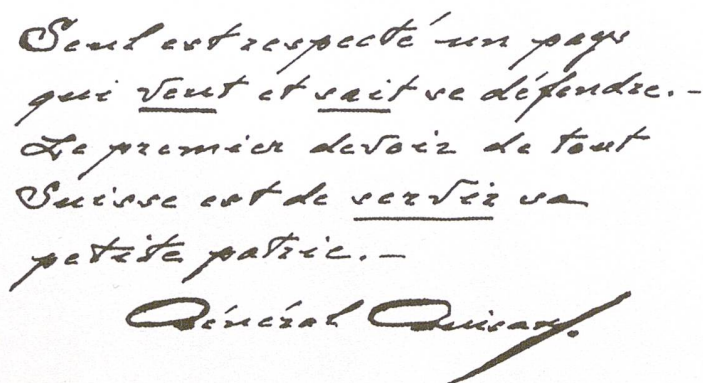 Seul est respecté un pays
qui veut et sait se défendre.-
Le premier devoir de tout
Suisse est de servir sa
petite patrie.-
Général Guisan.